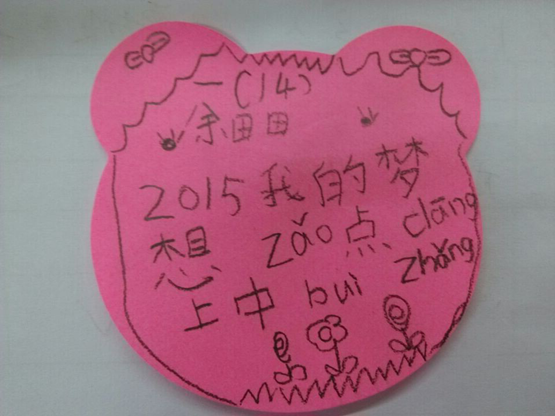 一(14)
余田田
2015我的梦
想 zǎo点 dāng
上中 buì zhǎng